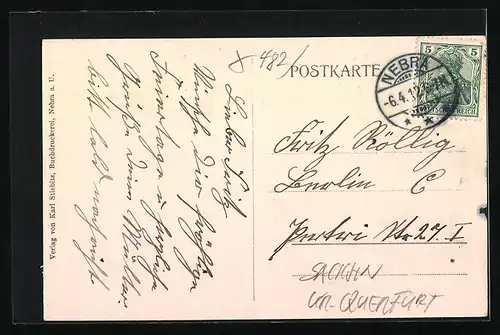 +482/
POSTKARTE
NEBRA
-6.4.12
5 5
DEUTSCHES REICH
Lieber Fritz
Wünsche Dir fröhliche
Feiertage u. herzliche
Grüße Deine Mutter
bitte bald Nachricht
Fritz Röllig
Berlin C
Str 27 I
SACHSEN
KR-QUERFURT
Verlag von Karl Stiebitz, Buchdruckerei, Nebra a. U.